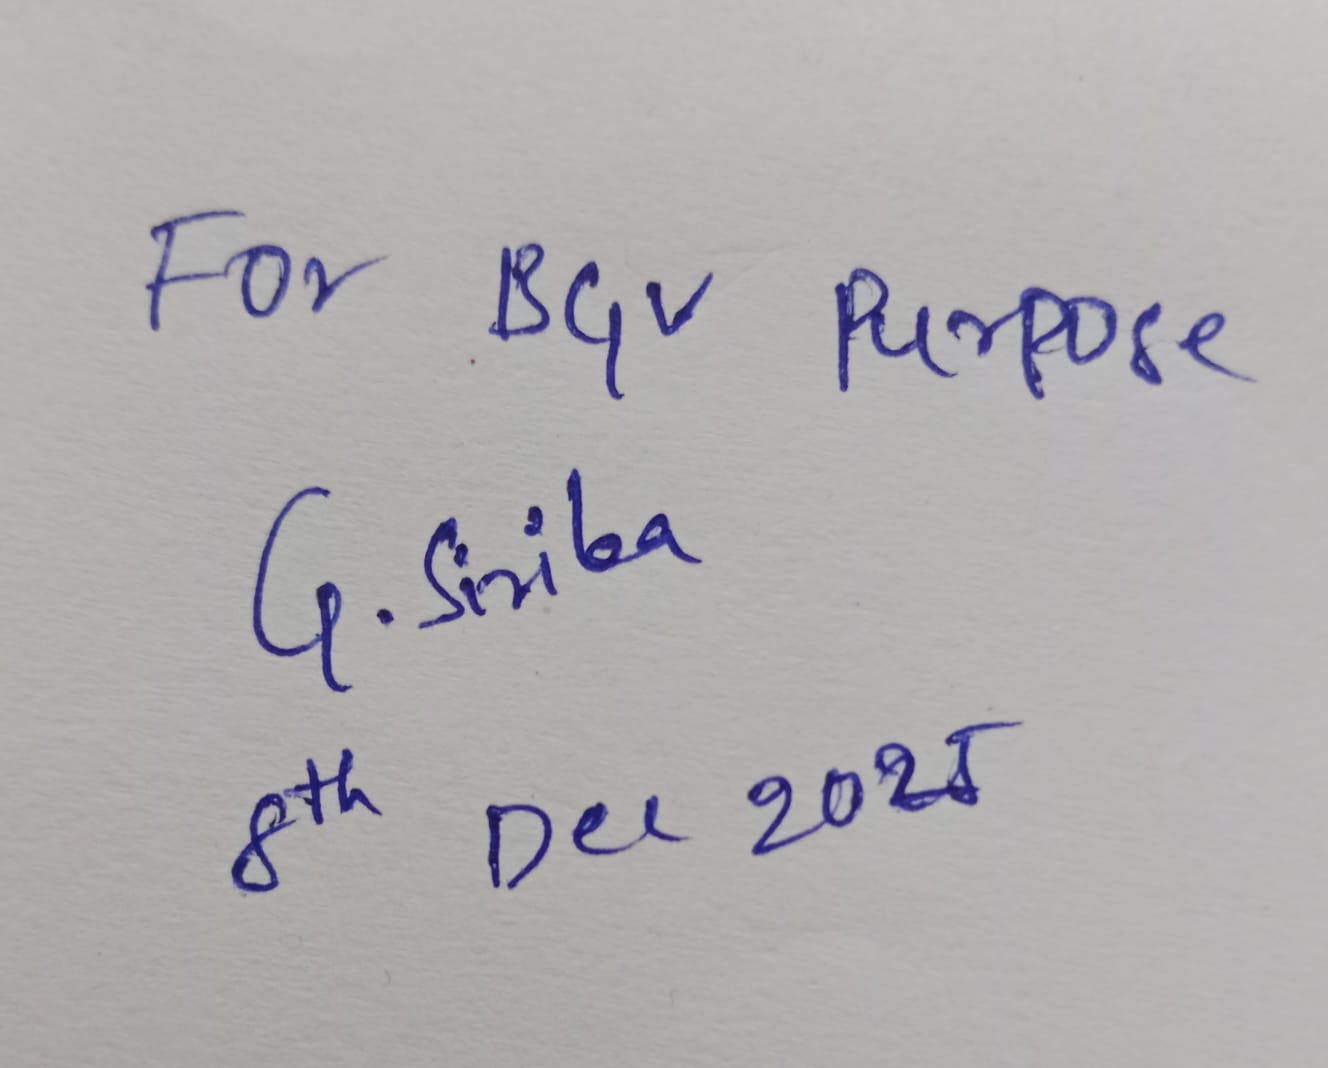 For BGV Purpose
G. Sirika
8th Dec 2025